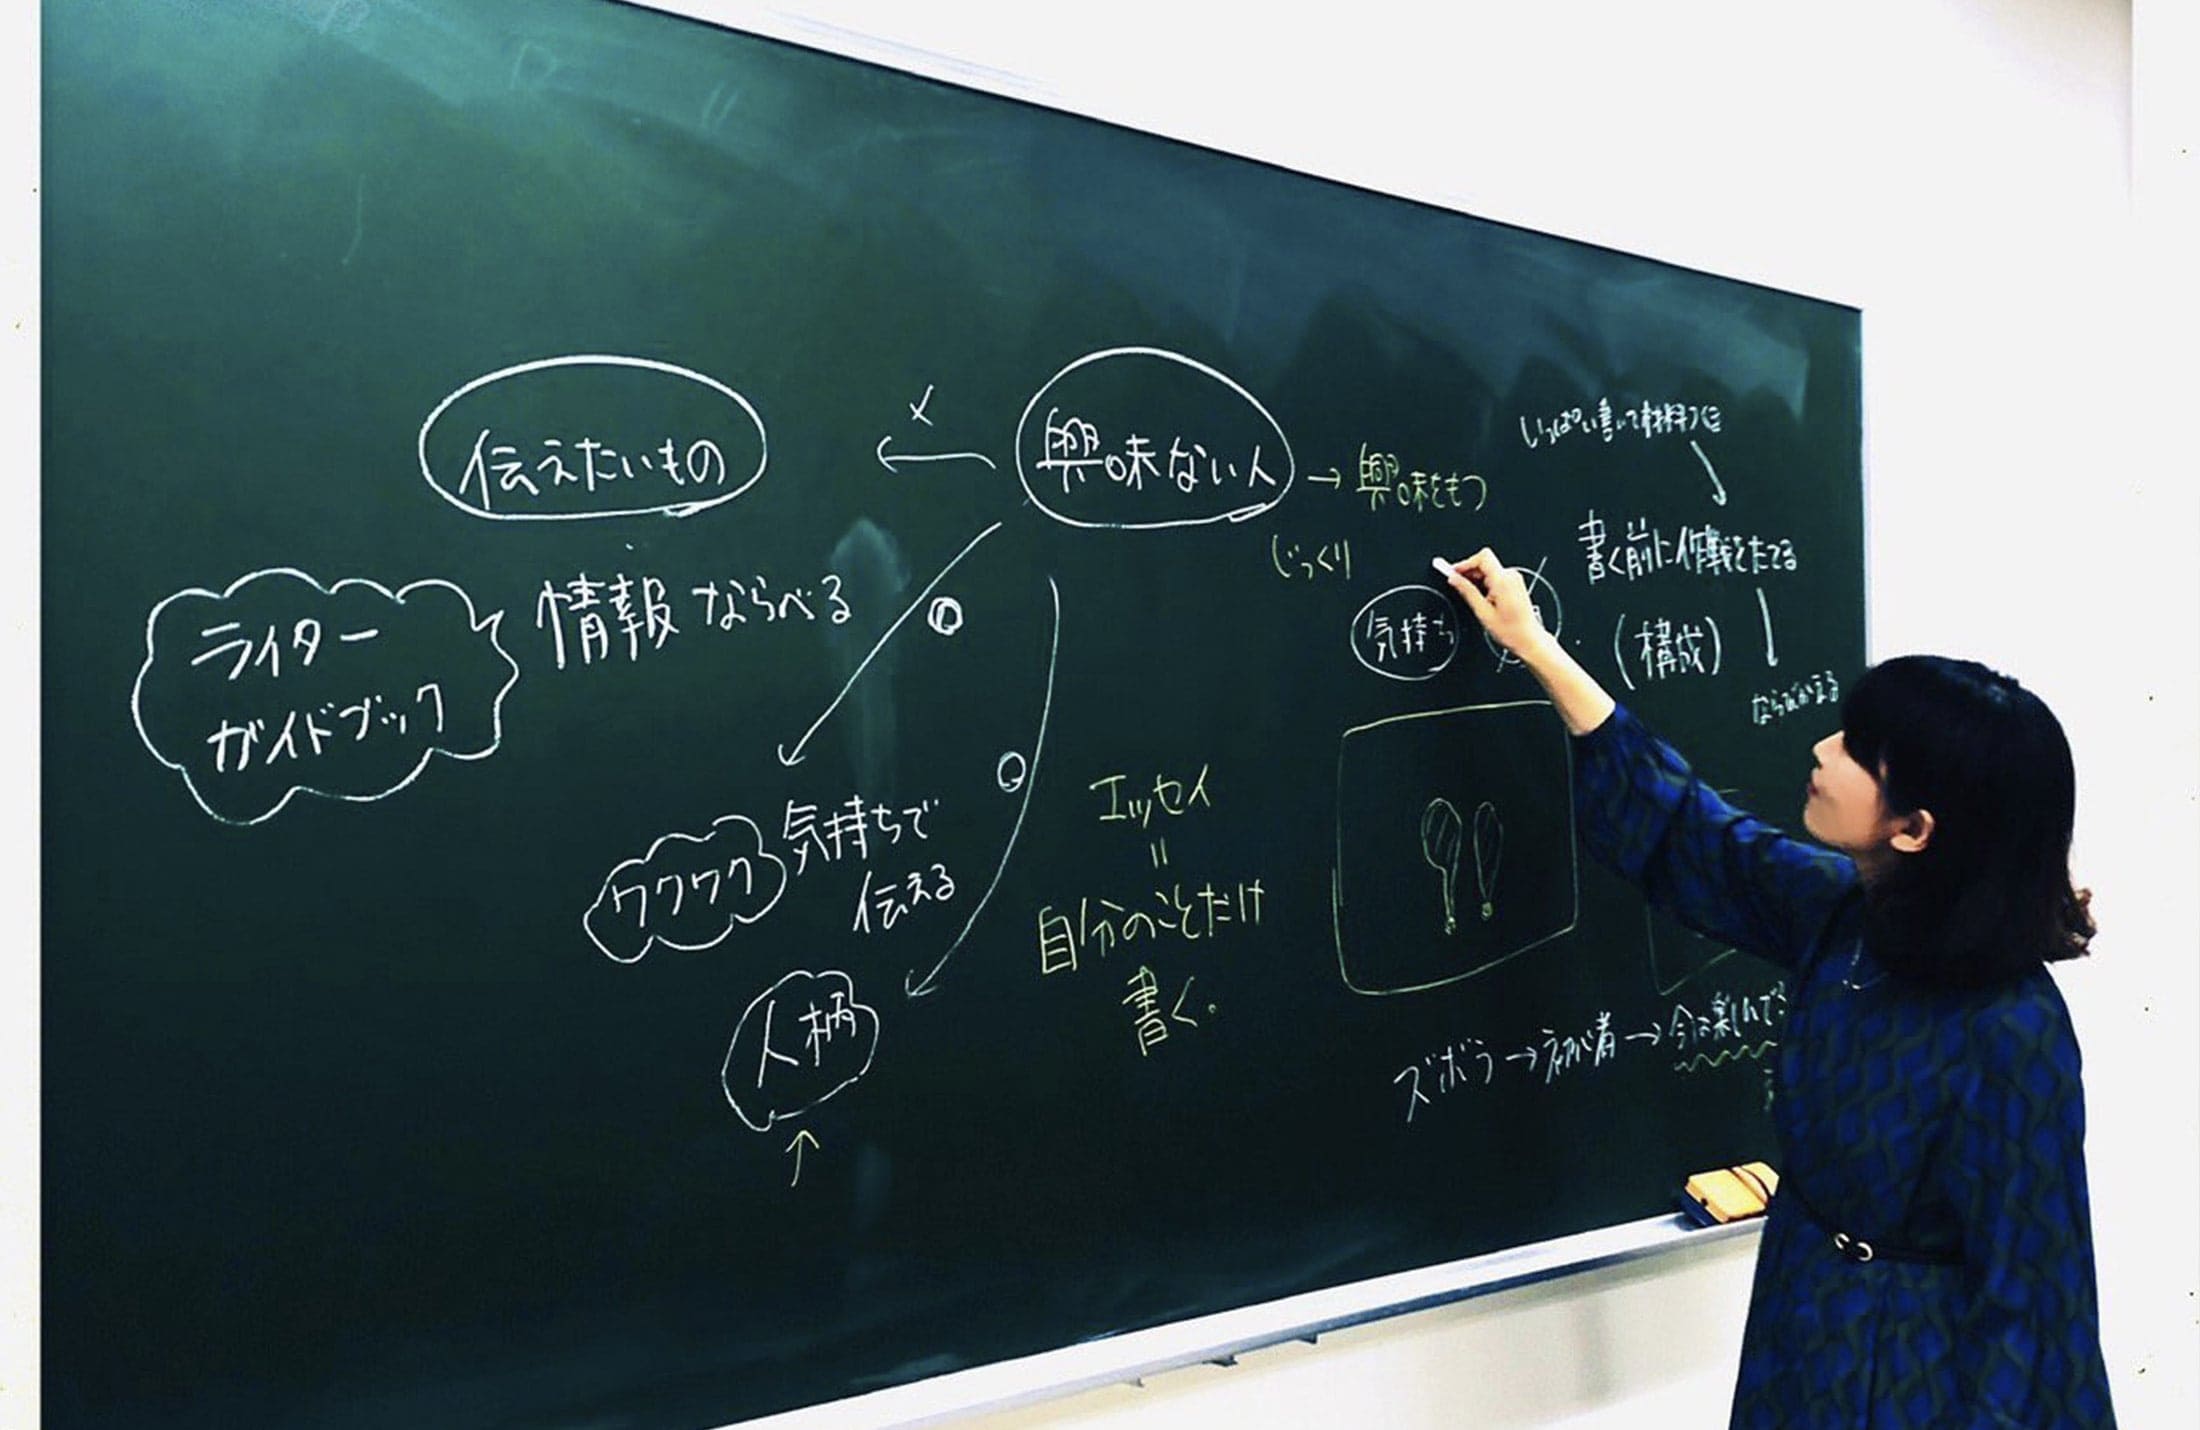 伝えたいもの
×
興味ない人
→興味をもつ
じっくり
ライター
ガイドブック
情報ならべる
ワクワク
気持ちで
伝える
人柄
エッセイ
=
自分のことだけ
書く。
いっぱい書いて材料つくる
書く前に作戦をたてる
(構成)
ならびかえる
気持ち
ズボラ→初心者→今は楽しんでる